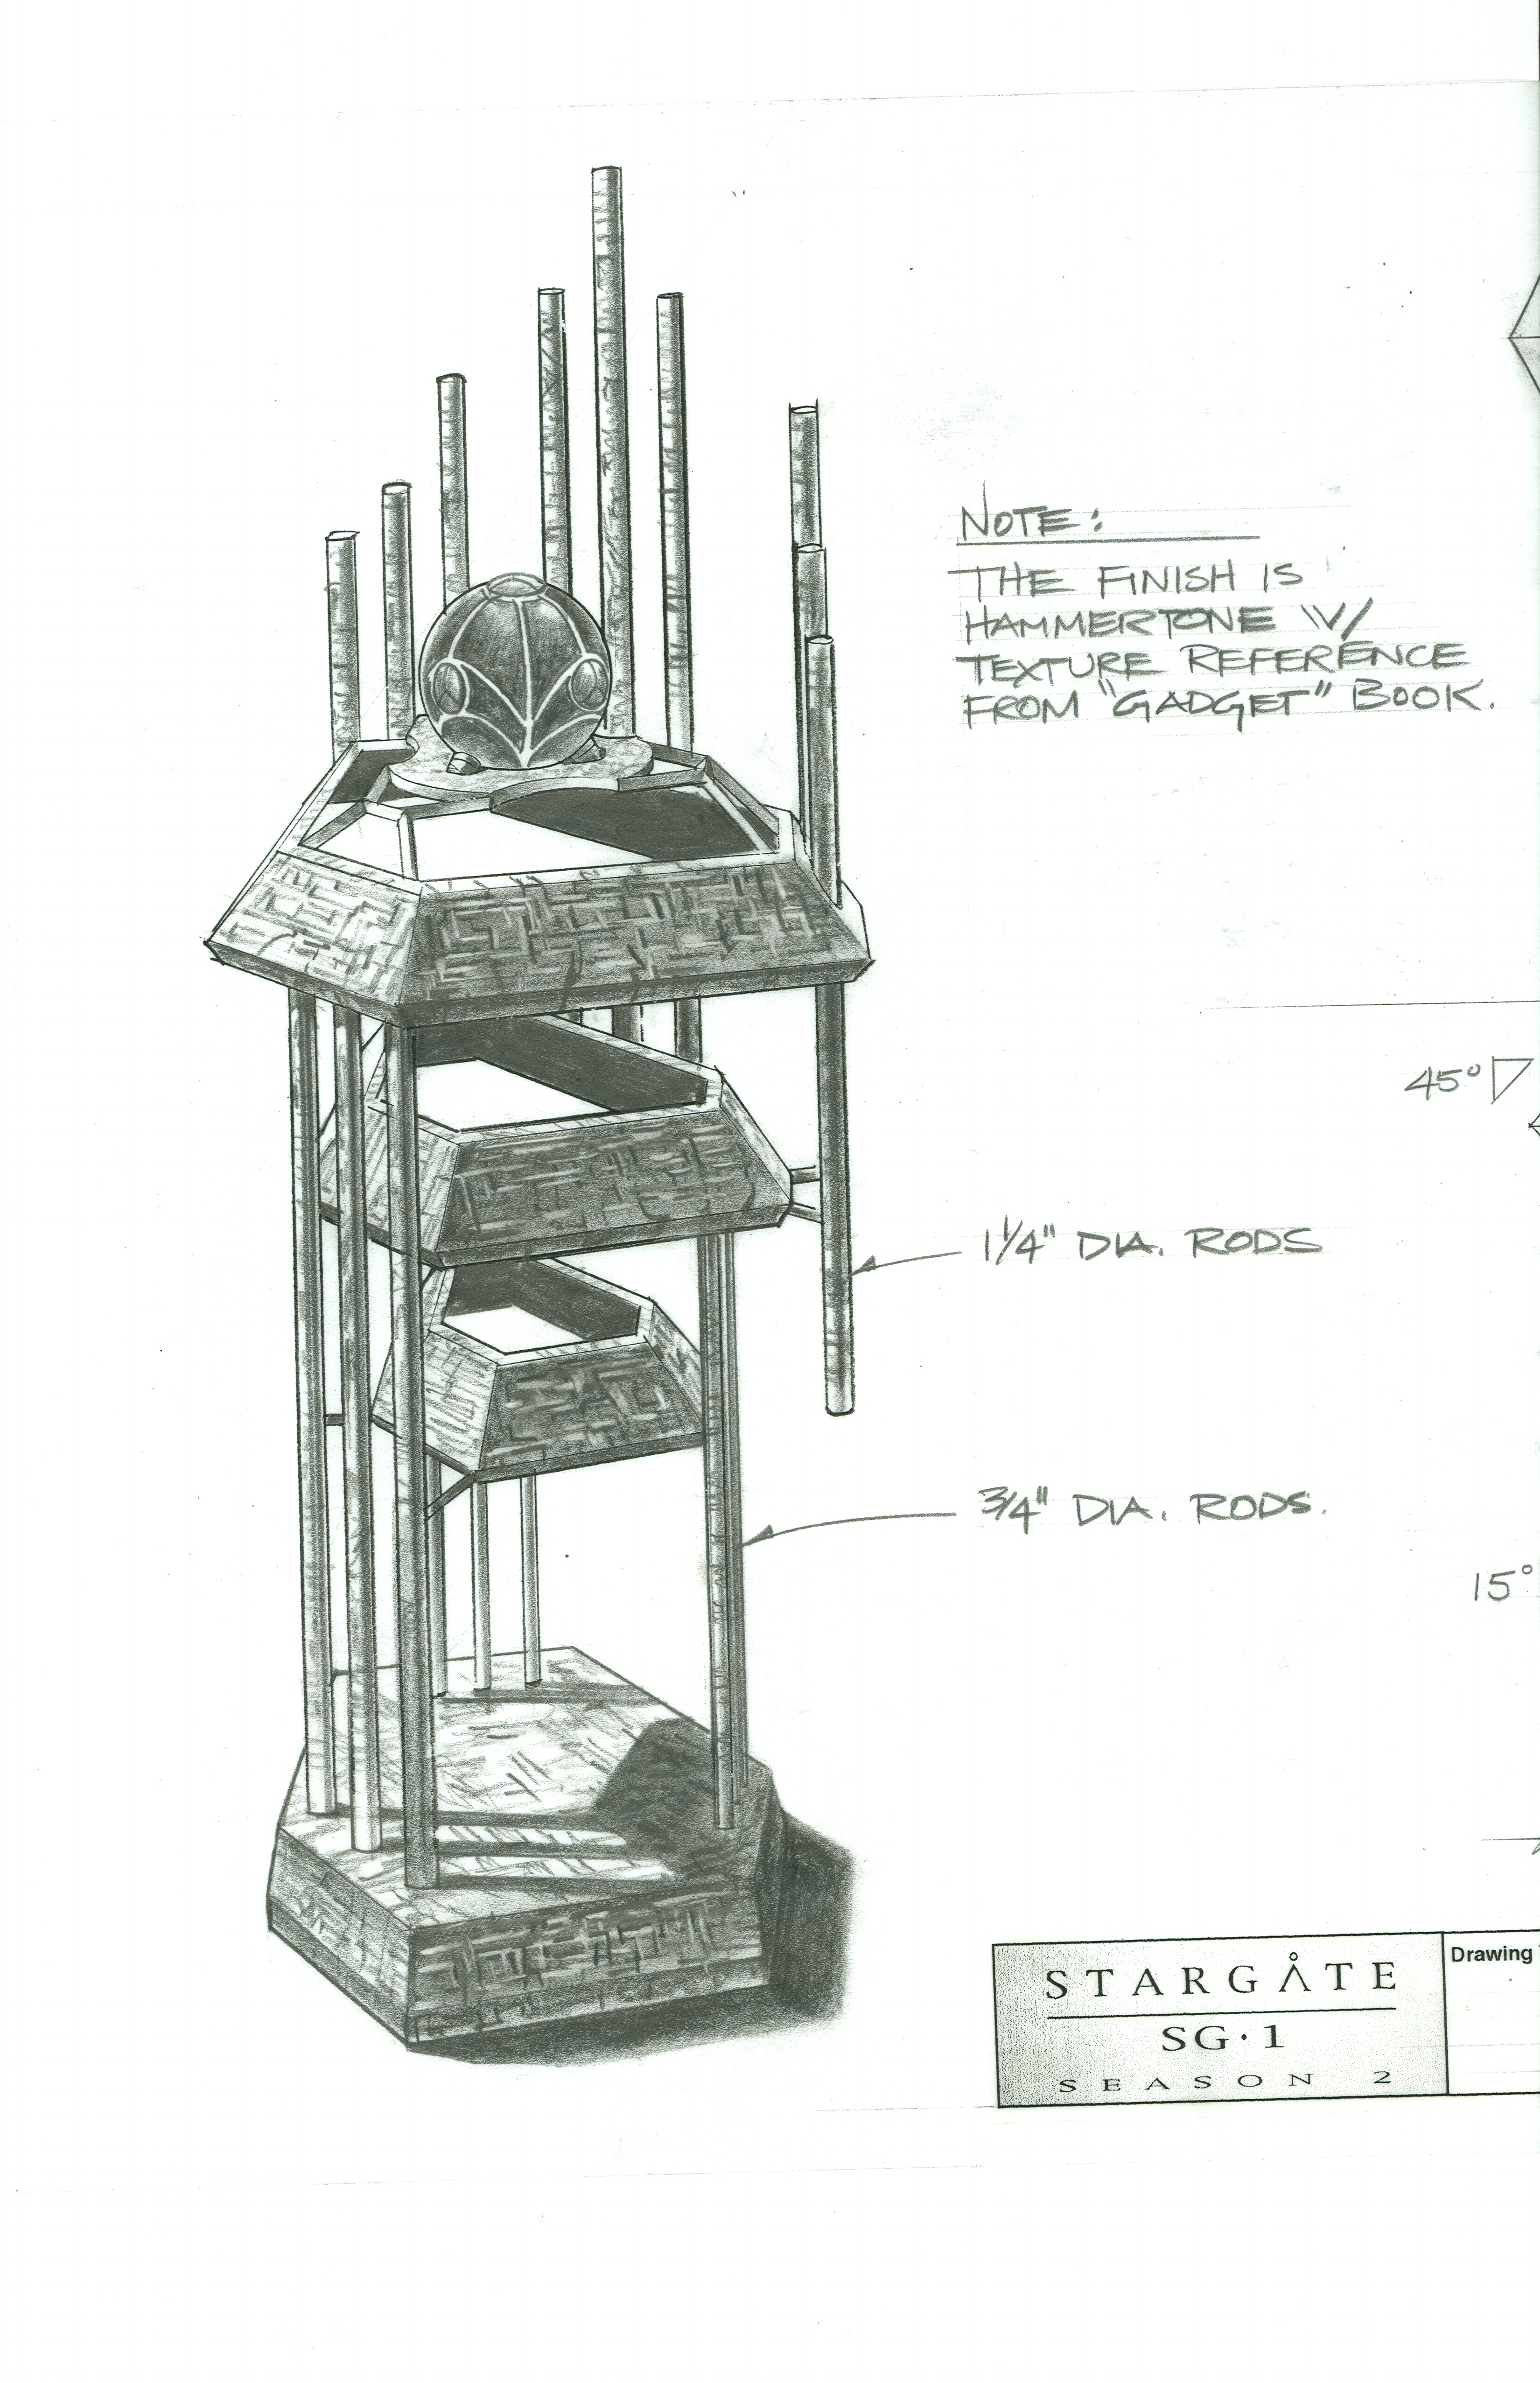 NOTE:
THE FINISH IS
HAMMERTONE W/
TEXTURE REFERENCE
FROM "GADGET" BOOK.
45°
1 1/4" DIA. RODS
3/4" DIA. RODS.
15°
STARGÅTE
SG·1
SEASON 2
Drawing